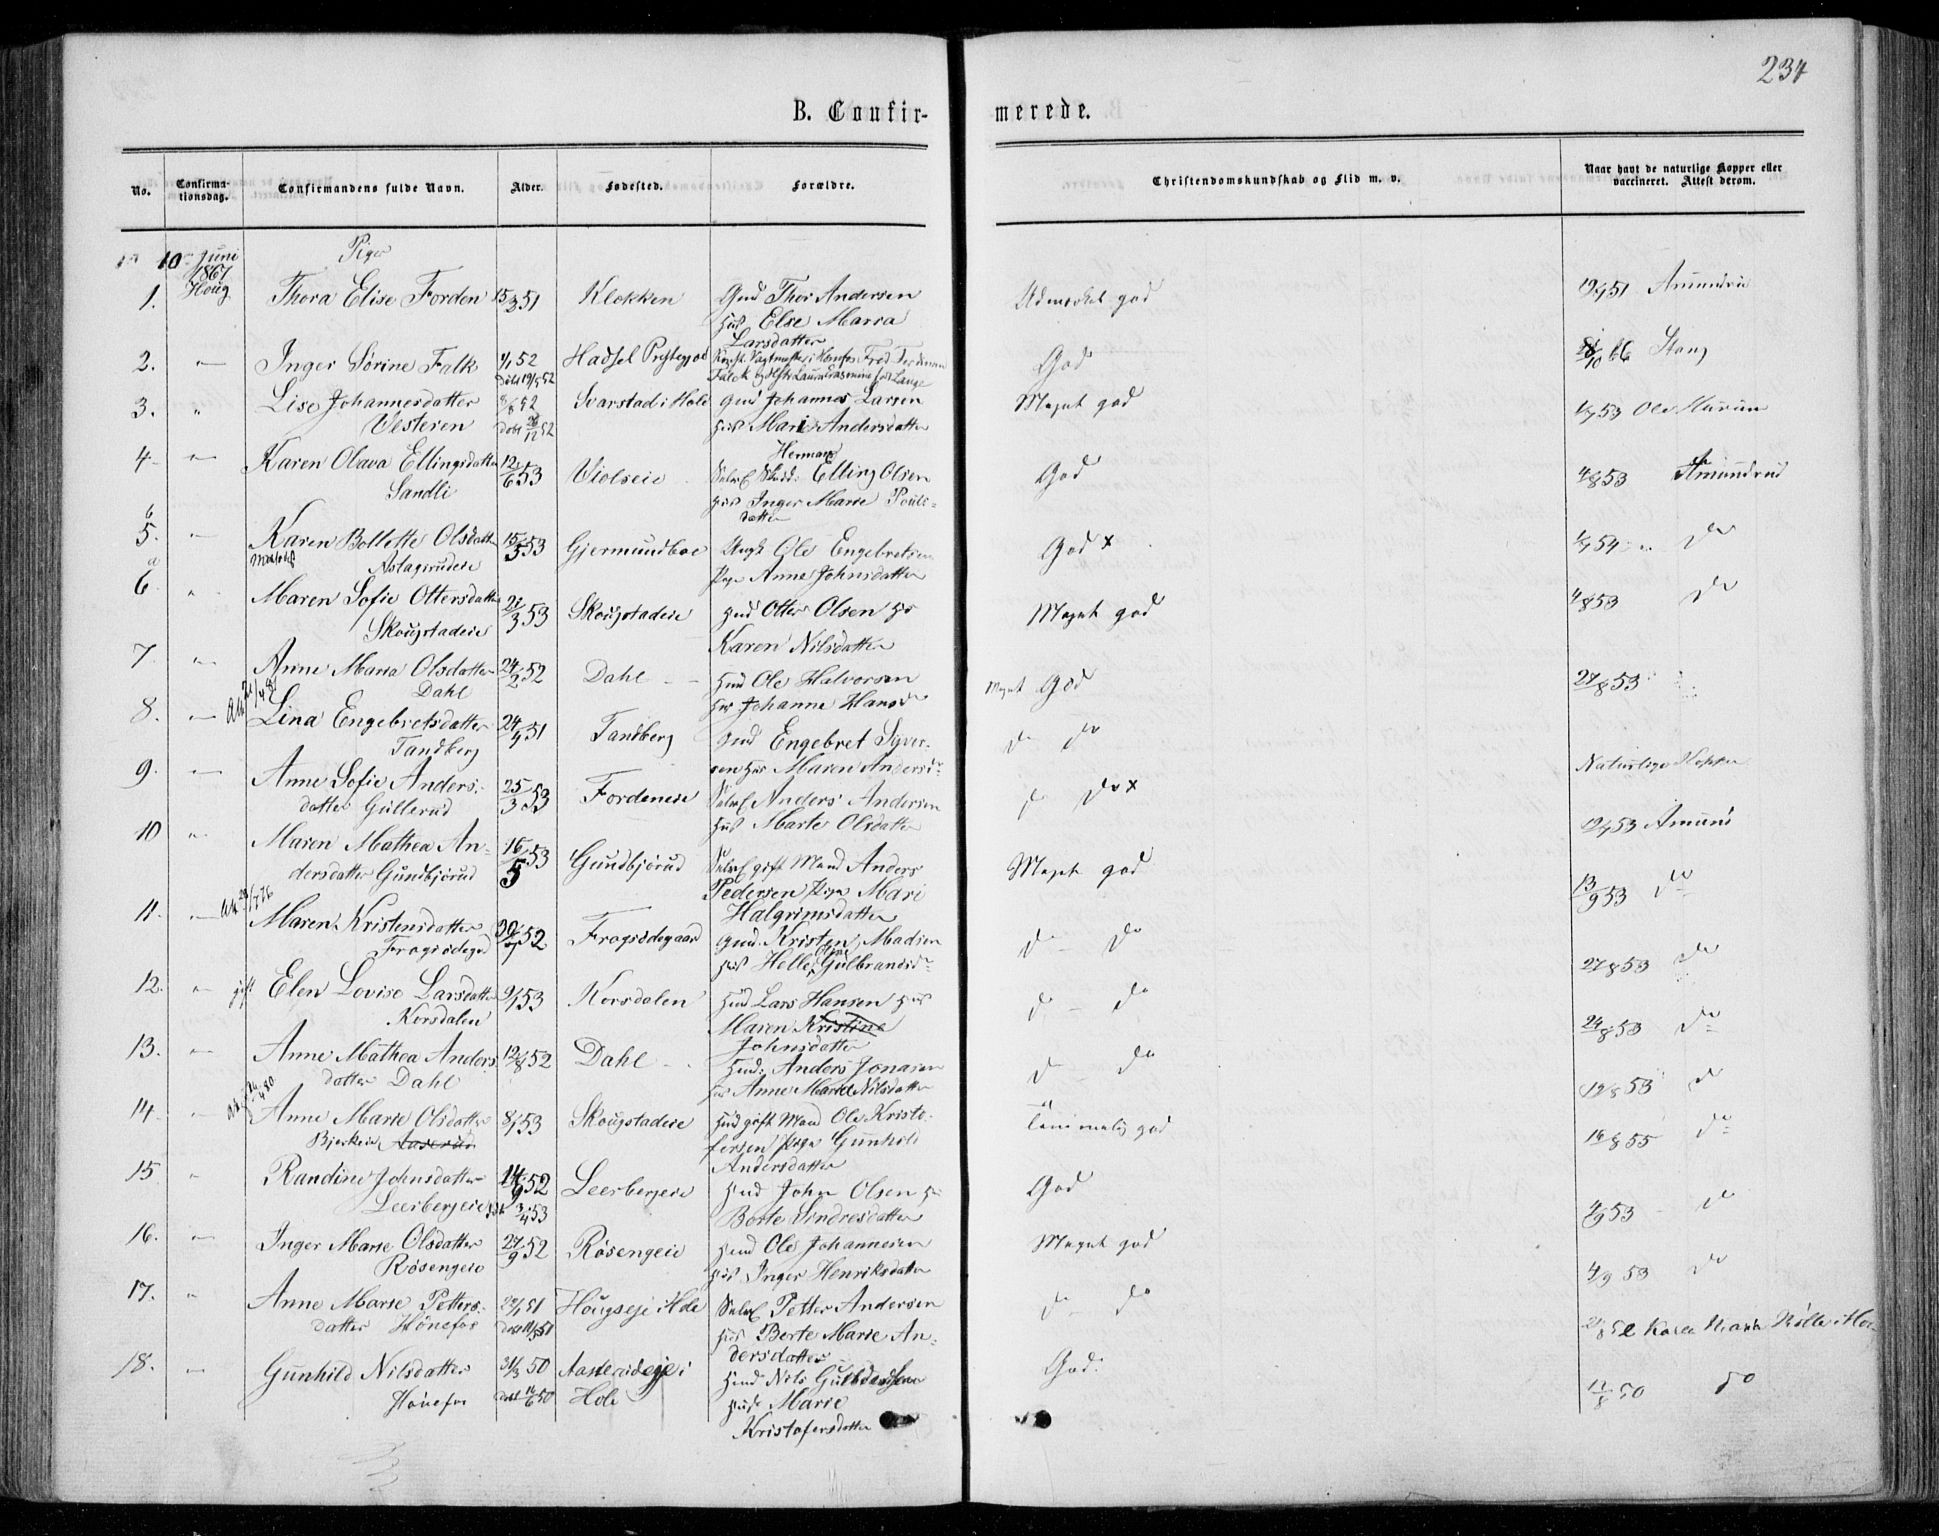 234
B. Confirmerede.
No. Confirmationsdag. Confirmandens fulde Navn. Alder. Fødested. Forældre. Christendomskundskab og Flid m. v. Naar havt de naturlige Kopper eller vaccineret. Attest derom.
10 Juni 1867 Houg
Piger
1. Thora Elise Forden 15/3 51 Klokken Gmd Thor Andersen Hus Else Maria Larsdatter Udmærket god 51 Amundrud
2. Inger Sørine Falk 52 Hadsel Prestegjed Falck Lange God 66 Stang
3. Lise Johannesdatter Vesteren 52 døbt 26/12 52 Svarstad i Hole Gmd Johannes Larsen Hus Mari Andersdatter Meget god 53 Ole
4. Karen Olava Ellingsdatter Sandli 12/6 53 Violseie Elling Olsen Hermans Hus Inger Marie Pouls-datter God 4/8 53 Amundrud
5. Karen Bollette Olsdatter 15/5 53 Gjermundboe Ungk Ole Engebretsen Pige Anne Johnsdatter God x 54 do
6. Maren Sofie Ottersdatter Skougstadeie 21/3 53 Skougstadeie Hmd Otter Olsen Hs Karen Nilsdatter Meget god 4/8 53 do
7. Anne Maria Olsdatter Dahl 24/2 52 Dahl Hmd Ole Halvorsen Hus Johanne Hansd Meget God 27/8 53
8. Lina Engebretsdatter Tandberg 24/9 51 Tandberg Gmd Engebret Syversen Hus Maren Andersdr do do Naturlige Kopper
9. Anne Sofie Andersdatter Gullerud 25/3 53 Fordeneie Anders Andersen Hus Marte Olsdatter do do x 53 Amund
10. Maren Mathea Andersdatter Gundbjørud 16/5 53 Gundbjørud gift Mand Anders Pedersen Pige Mari Halgrimsdatter Meget god 13/9 53 do
11. Maren Kristensdatter Frogsødegrd 30/7 52 Frogsødegaard Gmd. Kristen Madsen Hus Helle Gulbrandsdr do do 27/8 53 do
12. gift Elen Lovise Larsdatter Korsdalen 9/1 53 Korsdalen Hmd Lars Hansen Hus Maren Kristine Johnsdatter do do 24/8 53 do
13. Anne Mathea Andersdatter Dahl 12/8 52 Dahl Hmd. Anders Jonasen Hus Anne Marie Nilsdatter do do 12/8 53 do
14. Anne Marie Olsdatter Bjerkeie Aaserud 8/1 53 Skougstadeie Hmd gift Mand Ole Kristofersen Pige Gunhild Andersdatter Temmelig god 16/8 55 do
15. Randine Johnsdatter Leerbergeie 14/9 52 døbt 3/4 53 Leerbergeie Hmd John Olsen Hus Berte Sindresdatter God 4/9 53 do
16. Inger Marie Olsdatter Røsengeie 27/9 52 Røsengeie Hmd Ole Johannesen Hus Inger Henriksdatter Meget god 4/9 53 do
17. Anne Marie Pettersdatter Hønefos 51 Hougseje i Hole Petter Andersen Hus Berte Marie Andersdatter do do Karen Maria i
18. Gunhild Nilsdatter Hønefos 31/3 50 døbt 50 i Hole Hmd Nils Gulbrandsen Hus Marie Kristofersdatter God. 17/8 50 do